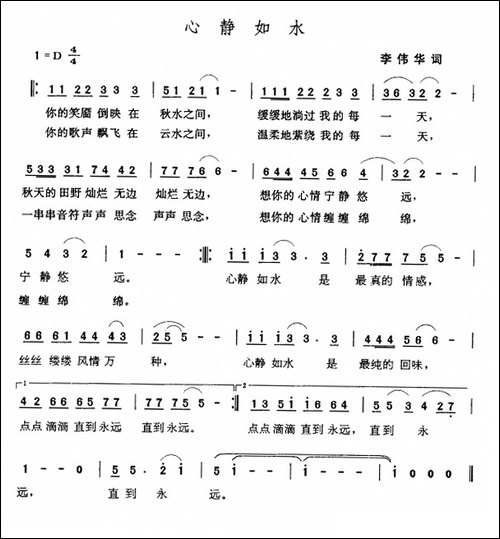 心静如水
1=D 4/4 李伟华 词
11 22 3 3 3 51 21 1 - 111 22 3 3 3 36 32 2 -
你的笑靥 倒映 在 秋水之间, 缓缓地淌过 我的 每 一 天,
你的歌声 飘飞 在 云水之间, 温柔地萦绕 我的 每 一 天,
533 31 74 42 77 76 6 - 333 46 56 67 4 32 2 -
秋天的 田野 灿烂 无边 灿烂 无边, 想你的 心情 宁静 悠 远,
一串串 音符 声声 思念 声声 思念, 想你的 心情 缠缠 绵 绵,
5 4 3 2 1 - - - i i i3 3 · 3 2 77 7 75 5 -
宁 静 悠 远。 心静 如水 是 最真的 情感,
缠 缠 绵 绵。
66 61 44 43 2 55 5 - - i i i3 3 · 3 444 56 6 -
丝丝 缕缕 风情 万 种, 心静 如水 是 最纯的 回味,
1 2
42 66 65 67 77 75 5 - 13 5i i6 64 55 3 4 27
点点 滴滴 直到 永远 直到 永远。 点点 滴滴 直到 永远, 直到 永
1 - - 0 5 5 · 2 i 5 - - i i - - - i 0 0 0
远, 直 到 永 远。